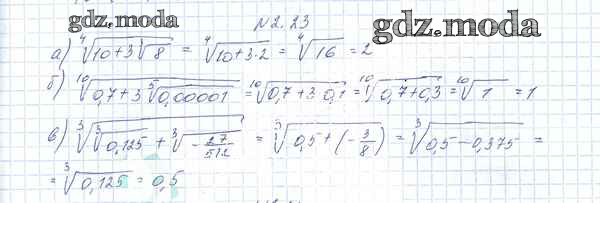 gdz.moda
№2.23
gdz.moda
а) ⁴√(10+3∛8) = ⁴√(10+3·2) = ⁴√16 = 2
б) ¹⁰√(0,7+3 ⁵√0,00001) = ¹⁰√(0,7+3·0,1) = ¹⁰√(0,7+0,3) = ¹⁰√1 = 1
в) ∛(∛0,125 + ∛(-27/512)) = ∛(0,5+(-3/8)) = ∛(0,5-0,375) =
= ∛0,125 = 0,5